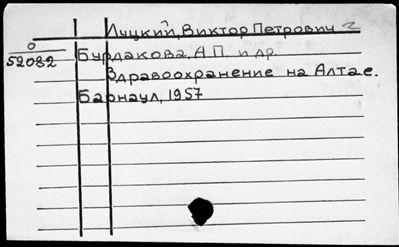 Луцкий, Виктор Петрович 2
0
52082
Бурдакова, А.П. и др.
Здравоохранение на Алтае.
Барнаул, 1957